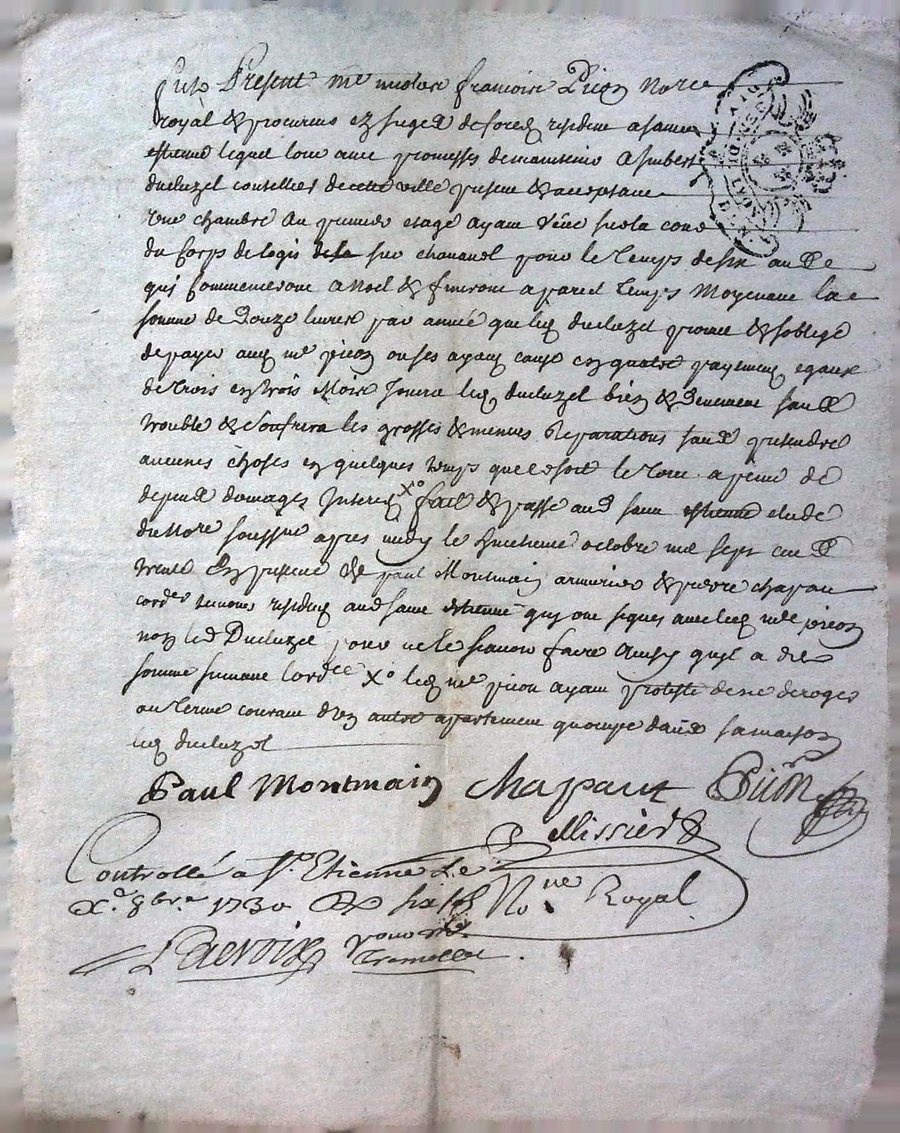 fust Present me nicolas francoise Picon nore
royal & procureur ez sieges de forez résidant a saint
estienne lequel loue avec promesses de maintenir a
ducluzel conseiller de cette ville présent & acceptant
une chambre au premier etage ayant veüe sur la cour
du corps de logis de sr pour le temps de six an
qui commenceront a noel & finiront a pareil temps moyenant la
somme de douze livres par année que led ducluzel promet & soblige
de payer aud me picon ou ses ayant cause en quatre payement egaux
de trois en trois mois jouira led ducluzel bien & deuement sans
trouble & soufrira les grosses & menues reparations sans pretendre
aucunes choses en quelques temps que ce soit le tout a peine de
depens domages Interets Xo fait & passé aud saint estienne etude
du nore soussigné apres midy le huitieme octobre mil sept cent
trente en presence de paul Montmain armurier & pierre chapau
cordr temoins residents aud saint etienne qui ont signes avec led me picon
non led Ducluzel pour ne le scavoir faire ainsy quil a dit
somme suivant lordce Xo led me picon ayant protesté de ne deroger
au terme courant dun autre apartement quocupe dans sa maison
led ducluzel
Paul Montmain chapaut Picon
Pellissier
Controllé a St. Etienne Le
Xe. 8bre 1730 six s No.re Royal
Lacroix pour mr.
Tremollet
GN. LYON DIX